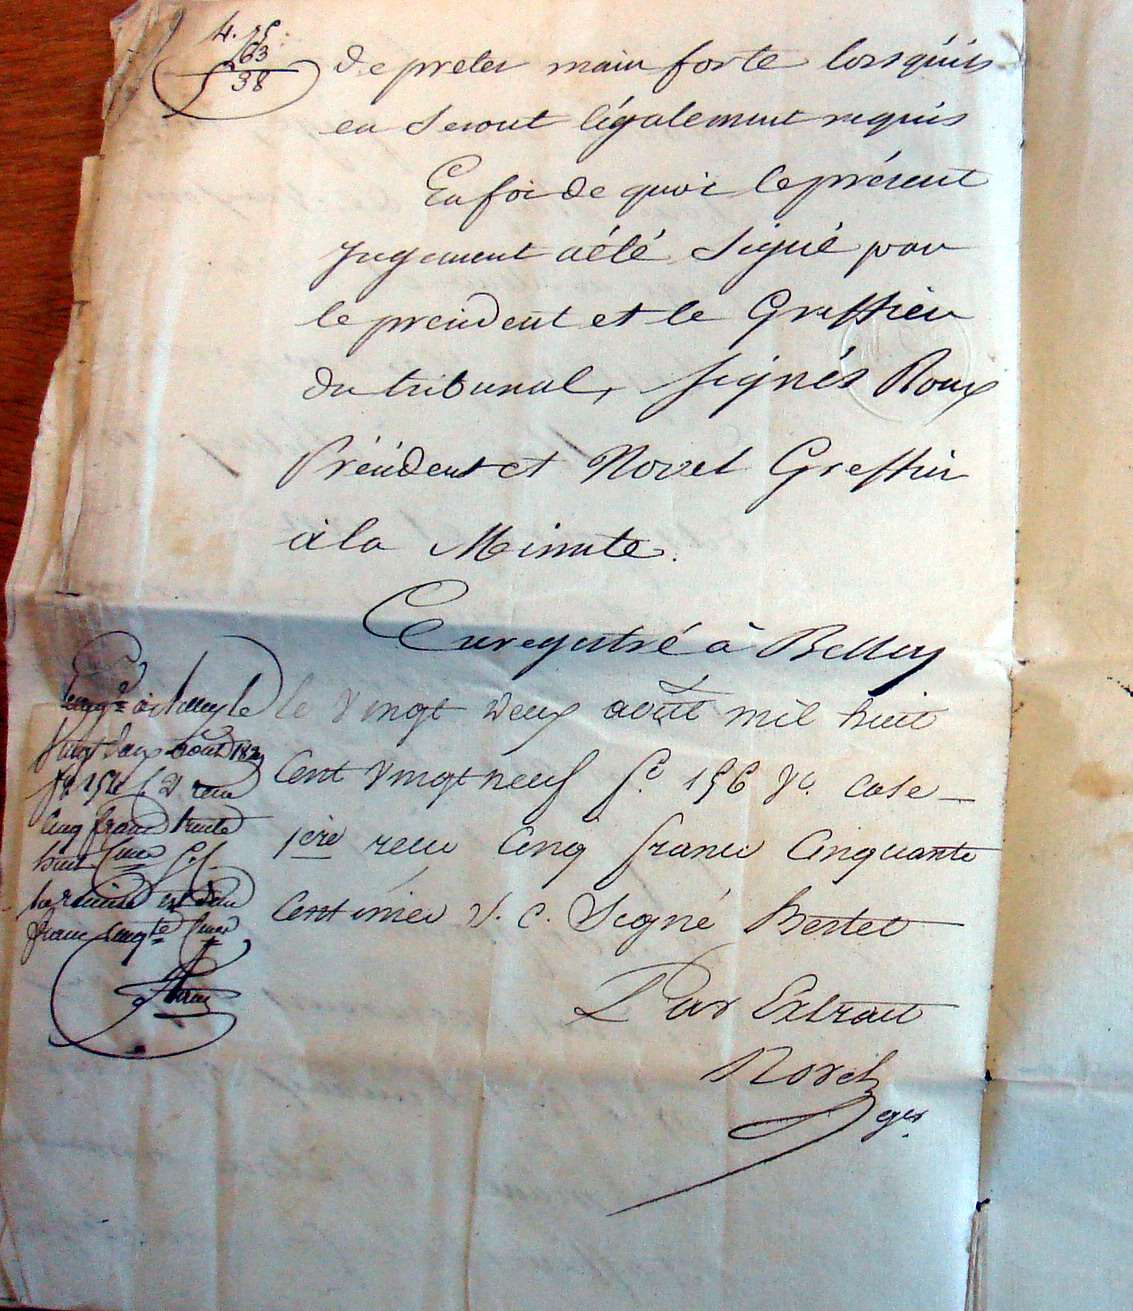 4. 75
63
5 38
de preter main forte lorsquils
en seront légalement requis
En foi de quoi le présent
jugement a été signé par
le president et le Greffier
du tribunal, signés Roux
Président et Novel Greffier
à la Minute.
Enregistré à Belley
le vingt deux août mil huit
cent vingt neuf fo. 156 Vo. case
1ère recu cinq francs cinquante
centimes d. c. Signé Bertet
Par Extrait
Novel
ger
Enregé à Belley le
vingt deux août 1829
fo. 156 recu
cinq francs trente
huit cmes
la remise est d'un
franc cinqte cmes